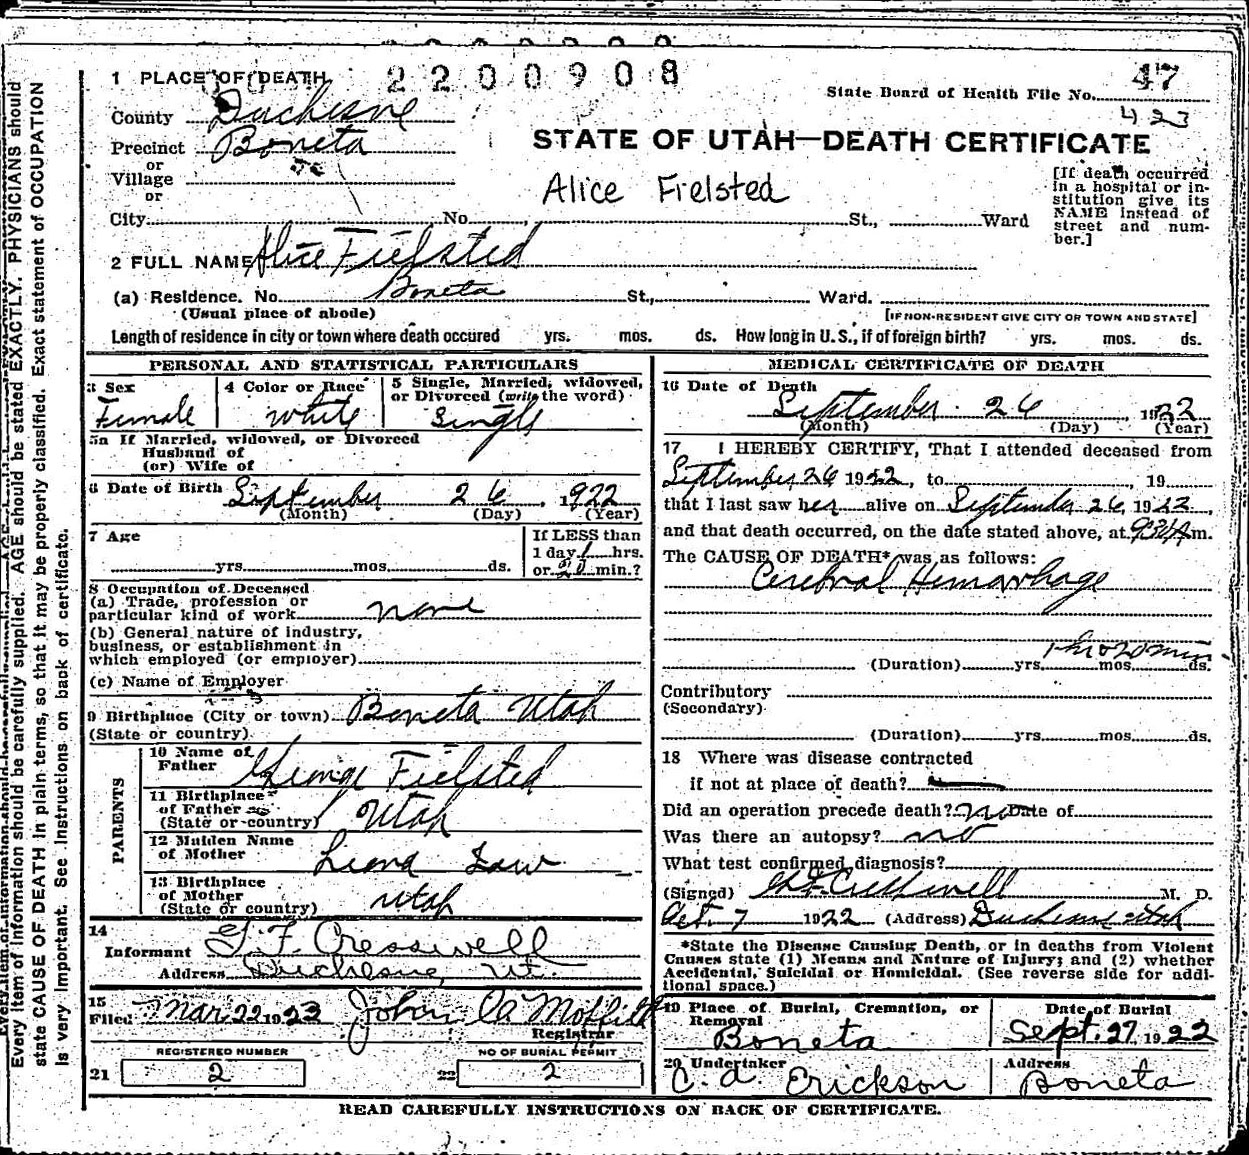 2200908
1 PLACE OF DEATH
47
State Board of Health File No.
423
County Duchesne
Precinct Boneta
or
Village
or
STATE OF UTAH—DEATH CERTIFICATE
Alice Fielsted
[If death occurred in a hospital or institution give its NAME instead of street and number.]
City No. St., Ward
2 FULL NAME Alice Fielsted
(a) Residence. No. Boneta St., Ward.
(Usual place of abode) [IF NON-RESIDENT GIVE CITY OR TOWN AND STATE]
Length of residence in city or town where death occured yrs. mos. ds. How long in U. S., if of foreign birth? yrs. mos. ds.
PERSONAL AND STATISTICAL PARTICULARS
3 Sex
Female
4 Color or Race
White
5 Single, Married, widowed, or Divorced (write the word)
Single
5a If Married, widowed, or Divorced
Husband of
(or) Wife of
6 Date of Birth September 26, 1922
(Month) (Day) (Year)
7 Age
yrs. mos. ds.
If LESS than
1 day 1 hrs.
or 20 min.?
8 Occupation of Deceased
(a) Trade, profession or
particular kind of work none
(b) General nature of industry,
business, or establishment in
which employed (or employer)
(c) Name of Employer
9 Birthplace (City or town) Boneta Utah
(State or country)
PARENTS
10 Name of Father George Fielsted
11 Birthplace of Father
(State or country) Utah
12 Maiden Name of Mother Leona Law
13 Birthplace of Mother
(State or country) Utah
14
Informant G. F. Cresswell
Address Duchesne, Ut.
15
Filed Mar 22 1923 John A Moffitt
Registrar
REGISTERED NUMBER
21 2
NO OF BURIAL PERMIT
22 2
MEDICAL CERTIFICATE OF DEATH
16 Date of Death
September 26, 1922
(Month) (Day) (Year)
17 I HEREBY CERTIFY, That I attended deceased from
September 26 1922, to , 19
that I last saw her alive on September 26, 1922,
and that death occurred, on the date stated above, at m.
The CAUSE OF DEATH* was as follows:
Cerebral Hemorrhage
1 hr 20 min
(Duration) yrs. mos. ds.
Contributory
(Secondary)
(Duration) yrs. mos. ds.
18 Where was disease contracted
if not at place of death?
Did an operation precede death? no Date of
Was there an autopsy? no
What test confirmed diagnosis?
(Signed) G F Cresswell M. D.
Oct. 7 1922 (Address) Duchesne Utah
*State the Disease Causing Death, or in deaths from Violent
Causes state (1) Means and Nature of Injury; and (2) whether
Accidental, Suicidal or Homicidal. (See reverse side for additional space.)
19 Place of Burial, Cremation, or Removal
Boneta
Date of Burial
Sept. 27 1922
20 Undertaker
C. A. Erickson
Address
Boneta
READ CAREFULLY INSTRUCTIONS ON BACK OF CERTIFICATE.
Every item of information should be carefully supplied. AGE should be stated EXACTLY. PHYSICIANS should
state CAUSE OF DEATH in plain terms, so that it may be properly classified. Exact statement of OCCUPATION
is very important. See Instructions on back of certificate.